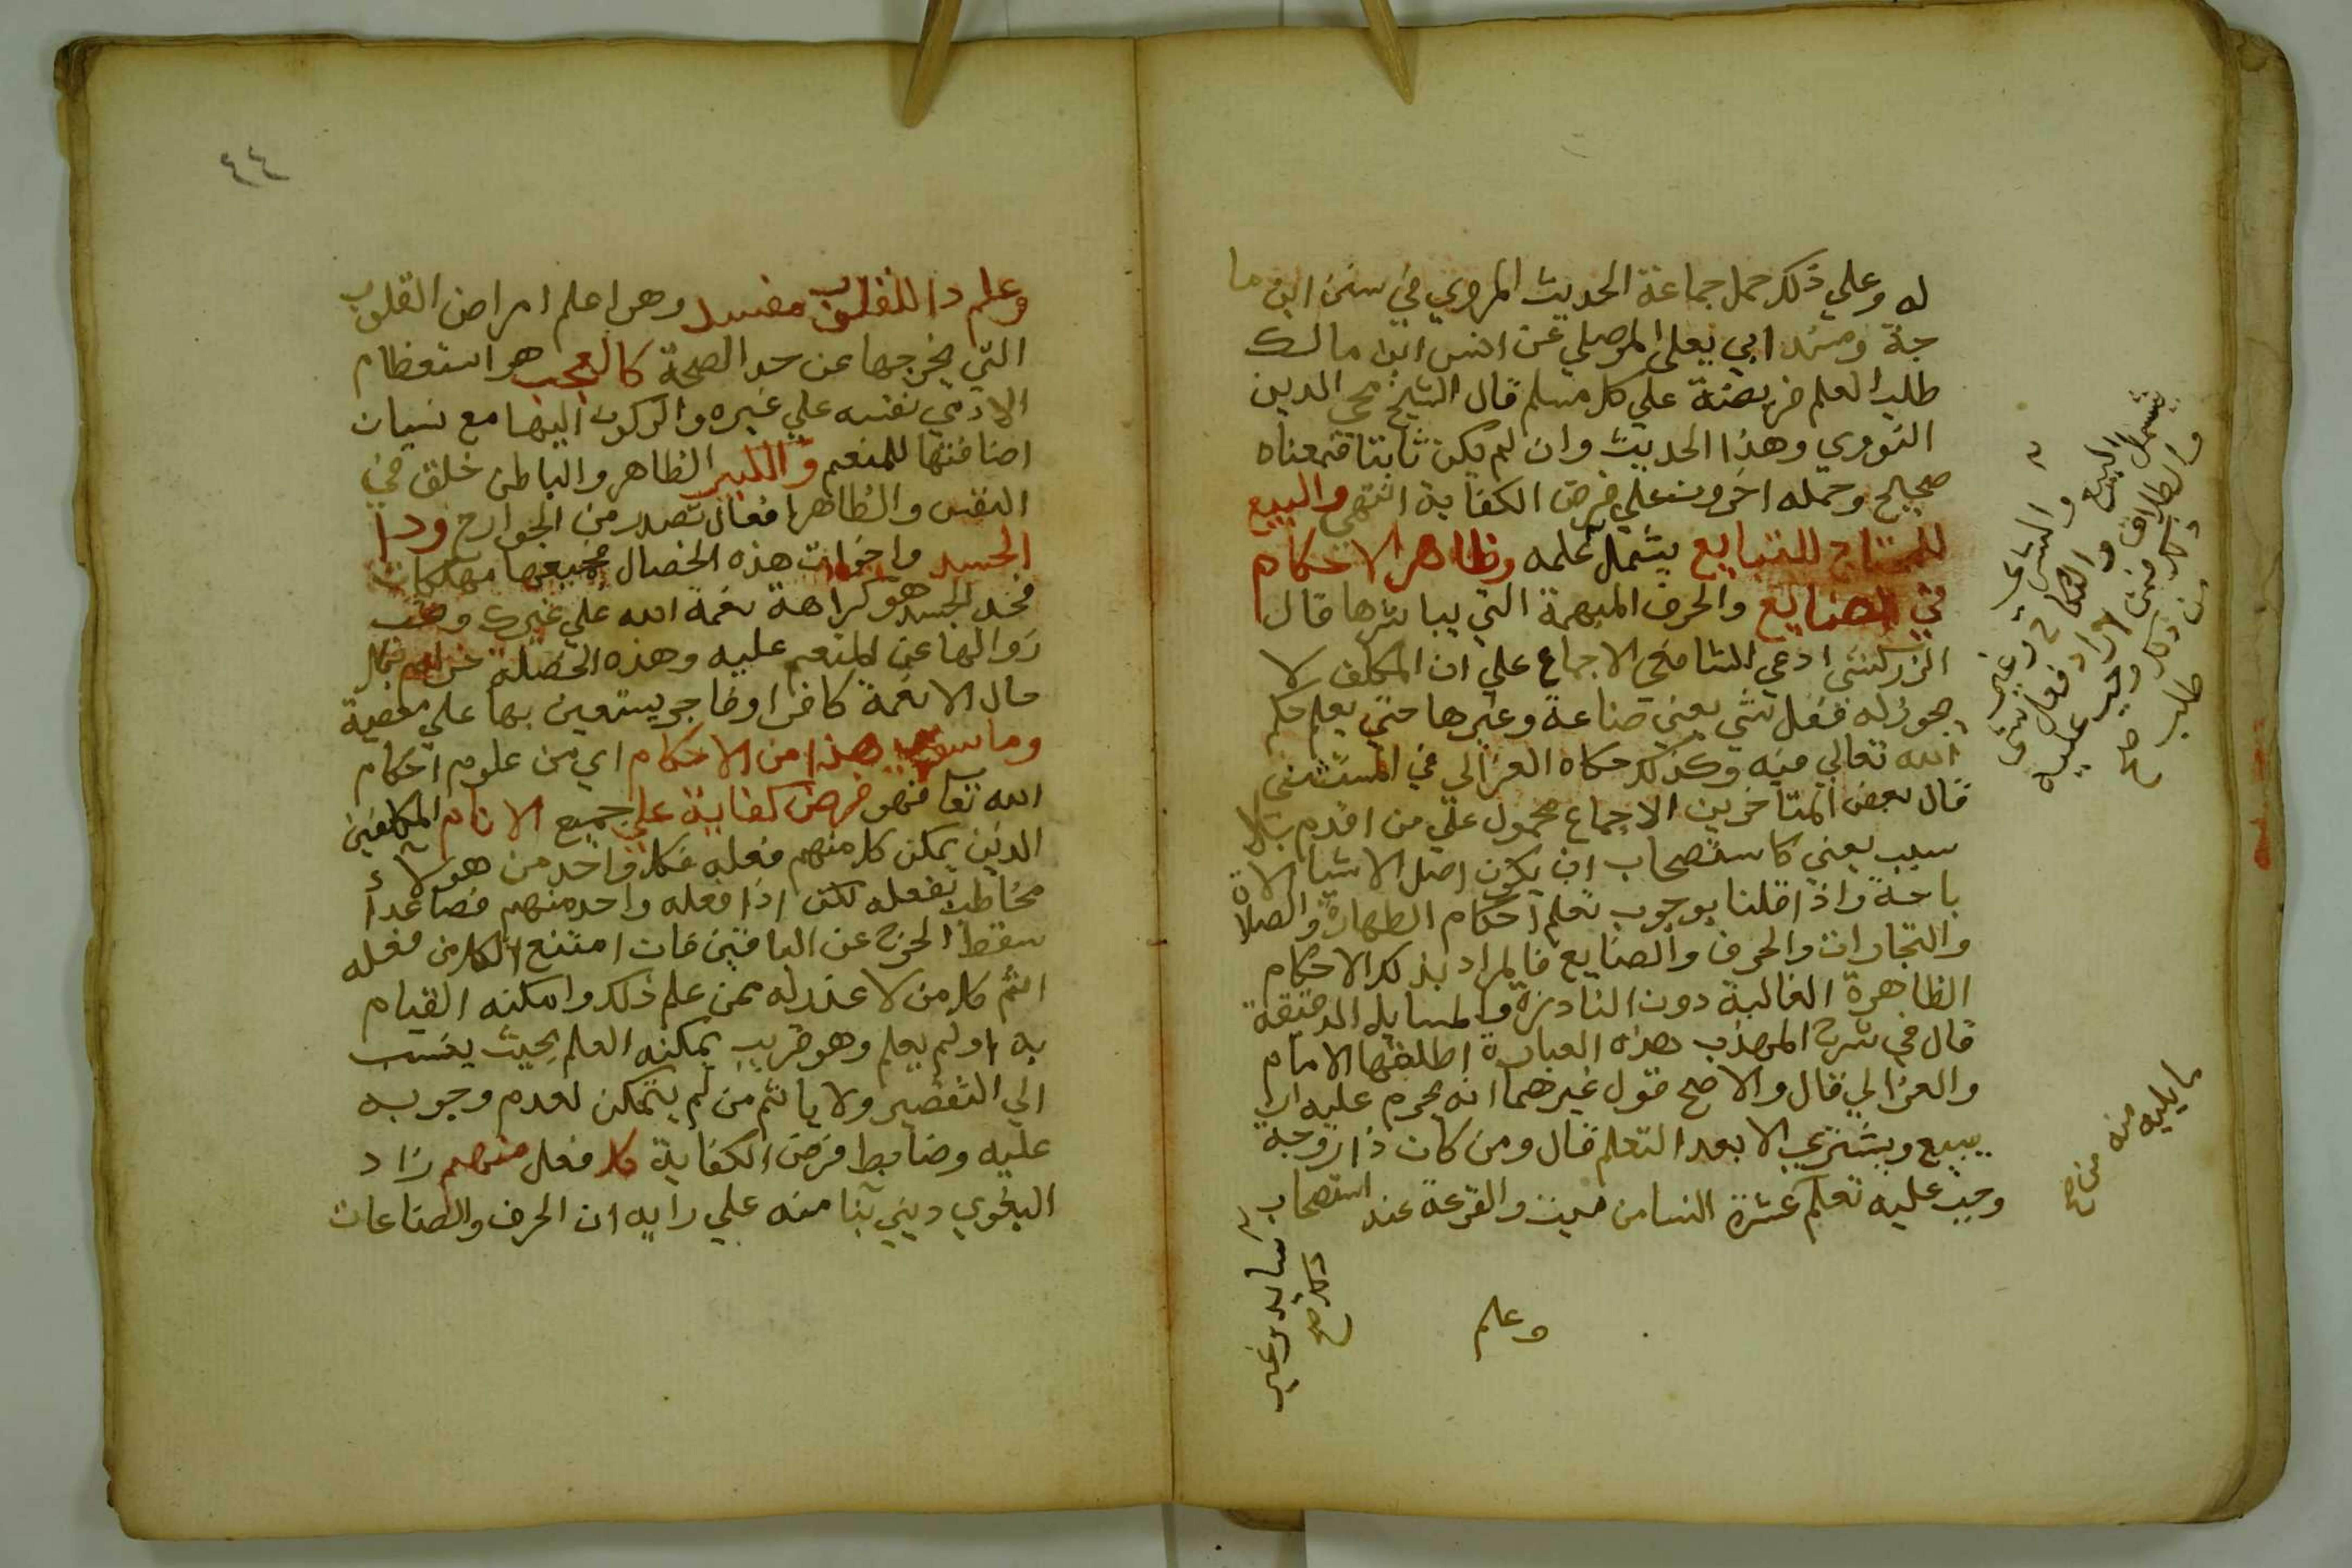 له وعلي ذلك حمل جماعة الحديث المروي في سنن ابن ما
جة ومسند ابي يعلى الموصلي عن انس ابن مالك
طلب العلم فريضة علي كل مسلم قال الشيخ محي الدين
النووي وهذا الحديث وان لم يكن ثابتا فمعناه
صحيح وحمله اخرون علي فرض الكفاية انتهي والبيع
للمحتاج للتبايع يشمل علمه وظاهر الاحكام
في الصنايع والحرف المبهمة التي يباشرها قال
الزركشي ادعي الشافعي الاجماع علي ان المكلف لا
يجوز له فعل شي يعني صناعة وغيرها حتي يعلم حكم
الله تعالي فيه وكذلك حكاه الغزالي في المستصفي
قال بعض المتاخرين الاجماع محمول علي من اقدم بلا
سبب يعني كاستصحاب ان يكون اصل الاشيا الا
باحة واذا قلنا بوجوب تعلم احكام الطهارة والصلاة
والتجارات والحرف والصنايع فالمراد بذلك الاحكام
الظاهرة الغالبة دون النادرة والمسايل الدقيقة
قال في شرح المهذب هذه العبارة اطلقها الامام
والغزالي قال والاصح قول غيرهما انه يحرم عليه ان
يبيع ويشتري الا بعد التعلم قال ومن كان ذا زوجة
وجب عليه تعلم عشرة النسا من مبيت والقرعة عند استصحاب
وعلم
والشراء وغير
البيع والنكاح
يشمل
والطلاق فمن اراد فعل شي
من ذلك وجب عليه
طلب
صح
ما يليه
منه
صح
ذلك صح
٤٤
وعلم دا للقلوب مفسد وهوا علم امراض القلوب
التي يخرجها عن حد الصحة كالعجب هو استعظام
الادمي نفسه علي غيره والركون اليها مع نسيان
اضافتها للمنعم والكبر الظاهر والباطن خلق في
النفس والظاهر افعال تصدر من الجوارح ودا
الحسد واخوات هذه الخصال جميعها مهلكات
فحد الحسد هو كراهة نعمة الله علي غيرك وحب
زوالها عن المنعم عليه وهذه الخصلة حرام بكل
حال الا نعمة كافرا وفاجر يستعين بها علي معصية
وما سوي هذا من الاحكام اي من علوم احكام
الله تعا فهو فرض كفاية علي جميع الانام المكلفين
الذين يمكن كل منهم فعله فكل واحد من هولاء
مخاطب بفعله لكن اذا فعله واحد منهم فصاعدا
سقط الحرج عن الباقين فان امتنع الكل من فعله
اثم كل من لا عذر له ممن علم ذلك وامكنه القيام
به اولم يعلم وهو قريب يمكنه العلم بحيث ينسب
الي التقصير ولا ياثم من لم يتمكن لعدم وجوبه
عليه وضابط فرض الكفاية كل فعل منهم زاد
البغوي ديني بنا منه علي رايه ان الحرف والصناعات